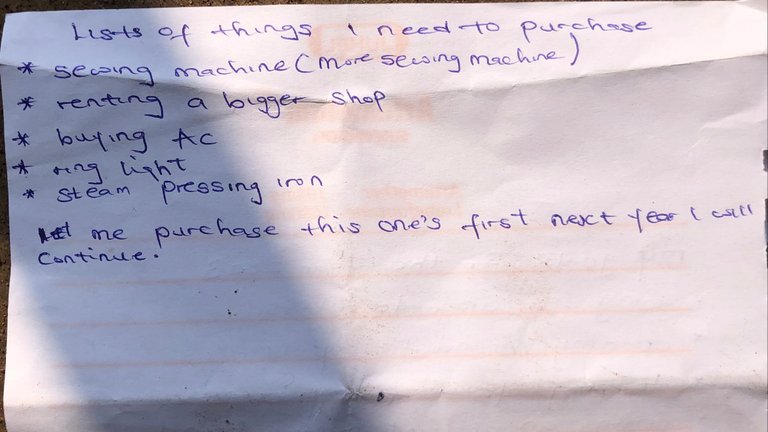 Lists of things I need to purchase
* sewing machine (More sewing machine)
* renting a bigger shop
* buying AC
* ring light
* steam pressing iron
Let me purchase this one's first next year I will
continue.